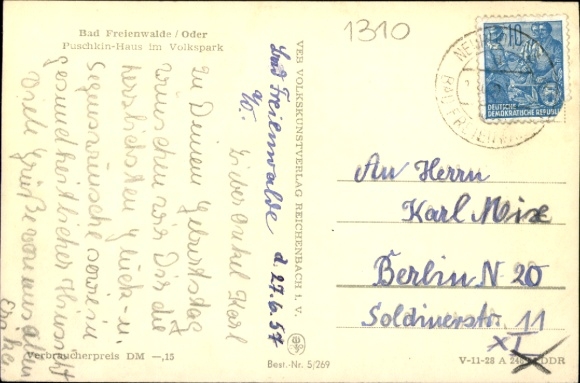 Bad Freienwalde / Oder
Puschkin-Haus im Volkspark
1310
Bad Freienwalde d. 27.6.57
a/O.
Lieber Onkel Karl
zu Deinem Geburtstag
wünschen wir Dir die
herzlichsten Glück- u.
Segenswünsche sowie in
gesundheitlicher Hinsicht
Viele Grüße von uns allen
Verbraucherpreis DM —,15
VEB VOLKSKUNSTVERLAG REICHENBACH I. V.
Best.-Nr. 5/269
10
DEUTSCHE
DEMOKRATISCHE REPUBLIK
An Herrn
Karl Mixe
Berlin N 20
Soldinerstr. 11
XI
V-11-28 A DDR